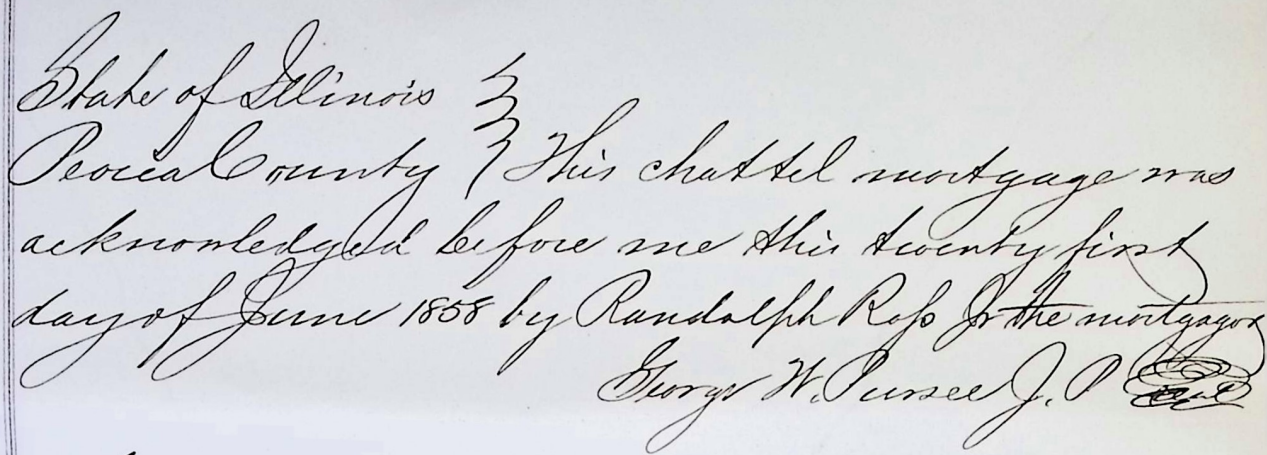 State of Illinois }
Peoria County } This chattel mortgage was
acknowledged before me this twenty first
day of June 1858 by Randolph Ross Jr the mortgagor
George W. Pursee J. P Seal